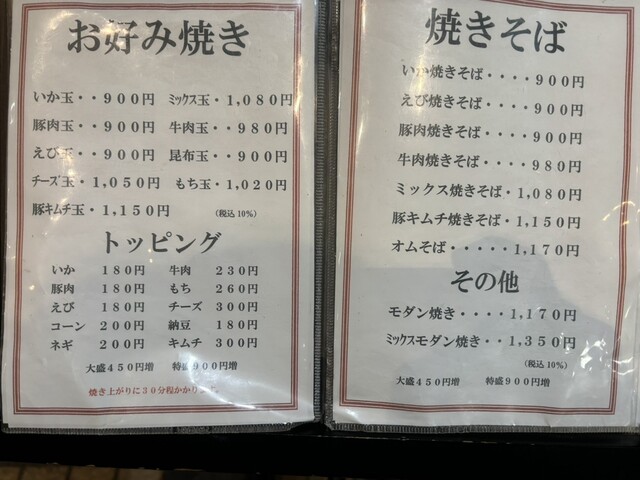 お好み焼き
いか玉・・900円 ミックス玉・1,080円
豚肉玉・・900円 牛肉玉・・980円
えび玉・・900円 昆布玉・・900円
チーズ玉・1,050円 もち玉・1,020円
豚キムチ玉・1,150円 (税込10%)
トッピング
いか 180円 牛肉 230円
豚肉 180円 もち 260円
えび 180円 チーズ 300円
コーン 200円 納豆 180円
ネギ 200円 キムチ 300円
大盛450円増 特盛900円増
焼き上がりに30分程かかります
焼きそば
いか焼きそば・・・・900円
えび焼きそば・・・・900円
豚肉焼きそば・・・・900円
牛肉焼きそば・・・・980円
ミックス焼きそば・1,080円
豚キムチ焼きそば・1,150円
オムそば・・・・・1,170円
その他
モダン焼き・・・・1,170円
ミックスモダン焼き・・1,350円
(税込10%)
大盛450円増 特盛900円増